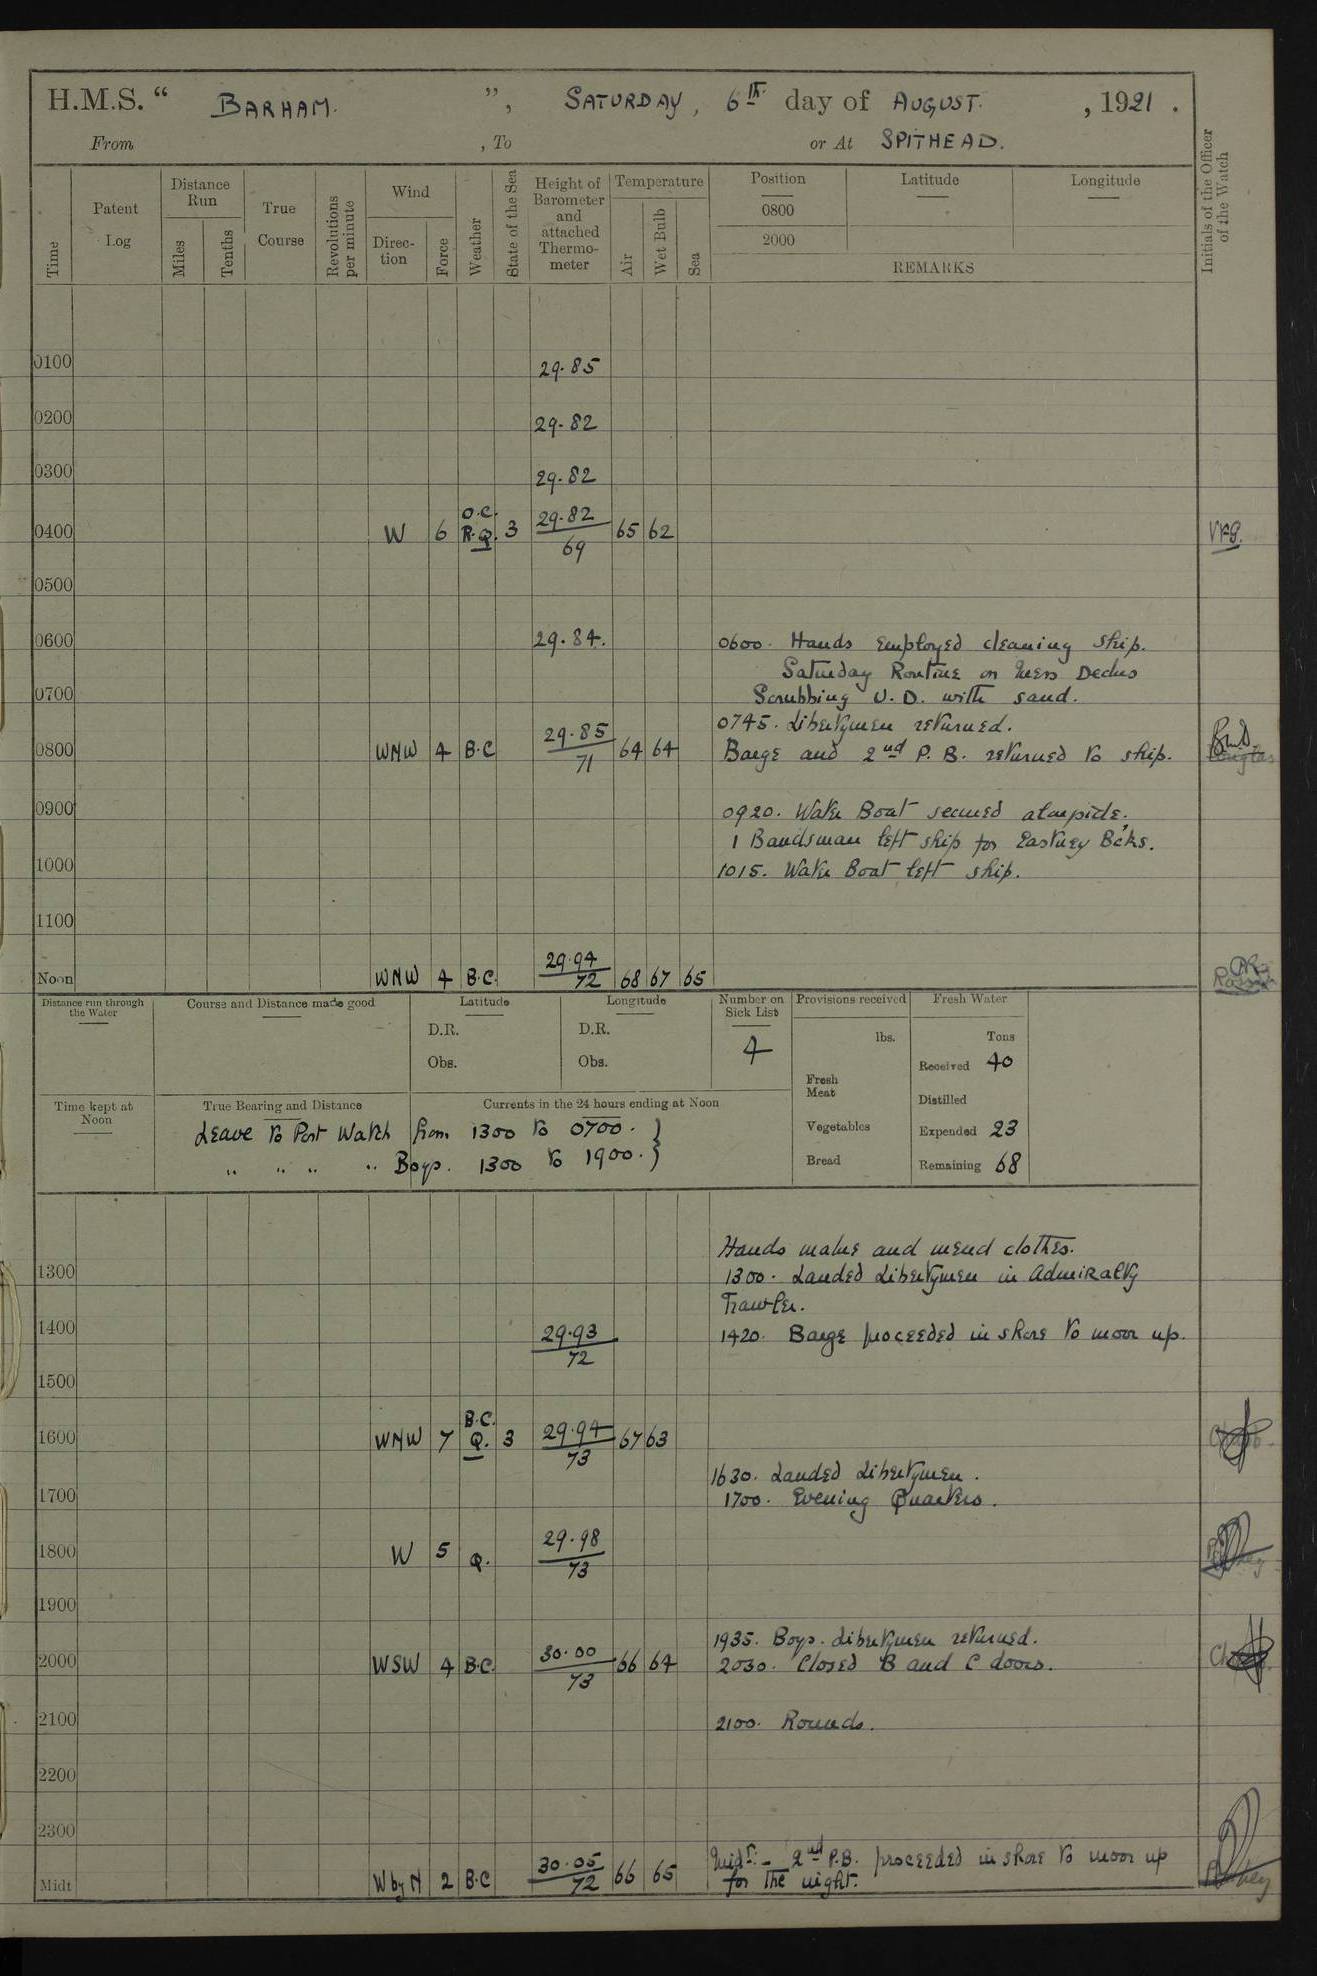 H.M.S. “ BARHAM. ”, SATURDAY, 6th day of AUGUST. , 1921 .
From , To or At SPITHEAD.
Time
Patent Log
Distance Run
Miles
Tenths
True Course
Revolutions per minute
Wind
Direc-tion
Force
Weather
State of the Sea
Height of Barometer and attached Thermo-meter
Temperature
Air
Wet Bulb
Sea
Position Latitude Longitude
0800
2000
REMARKS
Initials of the Officer of the Watch
0100 29.85
0200 29.82
0300 29.82
0400 W 6 O.C. R.Q. 3 29.82 69 65 62
0500
0600 29.84. 0600. Hands employed cleaning ship.
Saturday Routine on Mess Decks
0700 Scrubbing U.D. with sand.
0745. Libertymen returned.
0800 WNW 4 B.C 29.85 71 64 64 Barge and 2nd P.B. returned to ship.
0900 0920. Water Boat secured alongside.
1 Bandsman left ship for Eastney Bcks.
1000 1015. Water Boat left ship.
1100
Noon WNW 4 B.C. 29.94 72 68 67 65
Distance run through the Water
Course and Distance made good
Latitude
D.R.
Obs.
Longitude
D.R.
Obs.
Number on Sick List
4
Provisions received
lbs.
Fresh Meat
Vegetables
Bread
Fresh Water
Tons
Received 40
Distilled
Expended 23
Remaining 68
Time kept at Noon
True Bearing and Distance
Currents in the 24 hours ending at Noon
Leave to Port Watch from 1300 to 0700. }
" " " " Boys. 1300 to 1900. }
Hands make and mend clothes.
1300 1300. Landed Libertymen in Admiralty
Trawler.
1400 29.93 72 1420. Barge proceeded in shore to moor up.
1500
1600 WNW 7 B.C. Q. 3 29.94 73 67 63
1630. Landed Libertymen.
1700 1700. Evening Quarters.
1800 W 5 Q. 29.98 73
1900
1935. Boys. Libertymen returned.
2000 WSW 4 B.C. 30.00 73 66 64 2030. Closed B and C doors.
2100 2100. Rounds.
2200
2300
Midt. – 2nd P.B. proceeded in shore to moor up
Midt W by N 2 B.C 30.05 72 66 65 for the night.